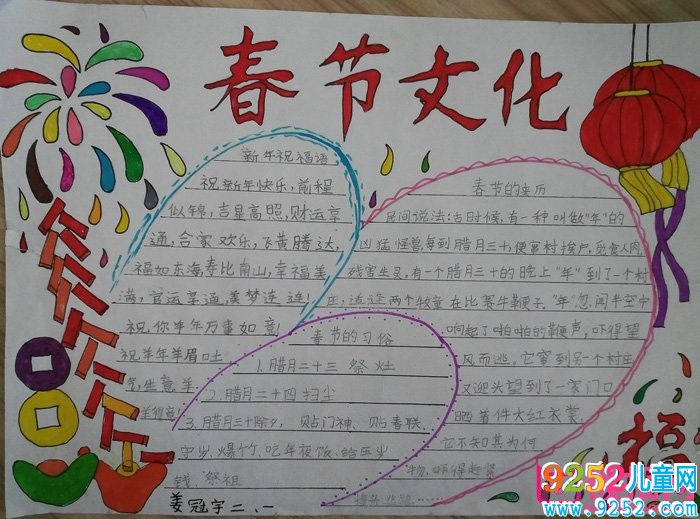 春节文化
新年祝福语:
祝新年快乐,前程
似锦,吉星高照,财运亨
通,合家欢乐,飞黄腾达,
福如东海,寿比南山,幸福美
满,官运亨通,美梦连连!
祝你羊年万事如意!
祝羊年羊眉吐
气,生意羊
羊得意!
春节的来历
民间说法:古时候,有一种叫做"年"的
凶猛怪兽,每到腊月三十,便窜村挨户,觅食人肉,
残害生灵,有一个腊月三十的晚上"年"到了一个村
庄,适逢两个牧童在比赛牛鞭子,"年"忽闻半空中
响起了啪啪的鞭声,吓得望
风而逃,它窜到另一个村庄
又迎头望到了一家门口
晒着件大红衣裳,
它不知其为何
物,吓得赶紧
春节的习俗
1.腊月二十三 祭灶
2.腊月二十四 扫尘
3.腊月三十除夕,贴门神、贴春联、
守岁、爆竹、吃年夜饭、给压岁
钱、祭祖
姜冠宇 二、一
福
9252儿童网
www.9252.com